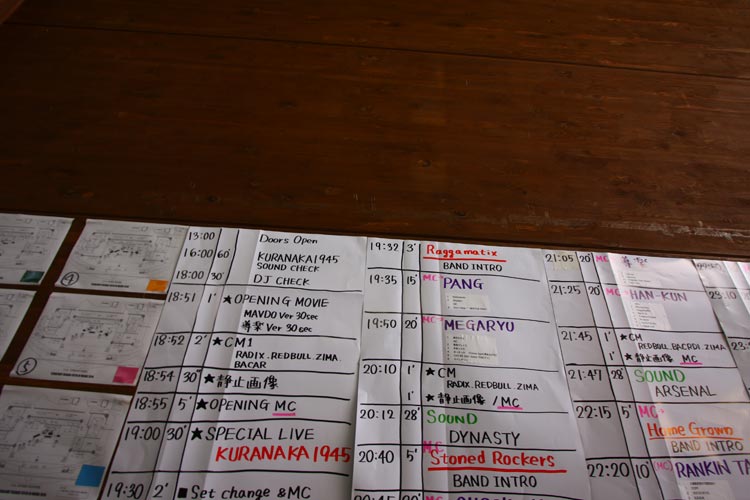 13:00 Doors Open
16:00 60' KURANAKA1945
SOUND CHECK
18:00 30' DJ CHECK
18:51 1' ★OPENING MOVIE
MAVDO Ver 30sec
導楽 Ver 30sec
18:52 2' ★CM1
RADIX.REDBULL.ZIMA.
BACAR
18:54 30" ★静止画像
18:55 5' ★OPENING MC
19:00 30' ★SPECIAL LIVE
KURANAKA1945
19:30 2' ■Set change &MC
19:32 3' Raggamatix
BAND INTRO
19:35 15' MC PANG
19:50 20' MC MEGARYU
20:10 1' ★CM
RADIX.REDBULL.ZIMA
1' ★静止画像 /MC
20:12 28' SOUND
DYNASTY
20:40 5' MC Stoned Rockers
BAND INTRO
21:05 20' MC 導楽
21:25 20' MC HAN-KUN
21:45 1' ★CM
REDBULL.BACRDI.ZIMA
1' ★静止画像 MC
21:47 28' SOUND
ARSENAL
22:15 5' MC Home Grown
BAND INTRO
22:20 10' MC RANKIN TA
23:10
4
5